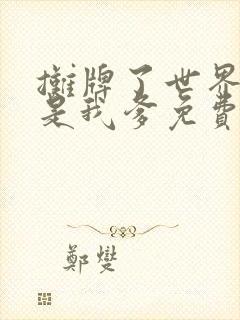 攤牌了世界
是我爹免費
鄭燮